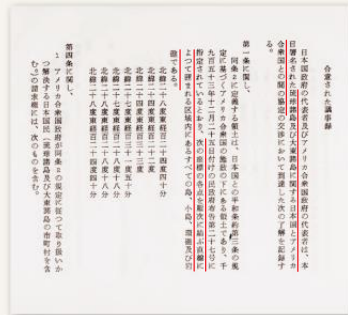 合意された議事録
日本国政府の代表者及びアメリカ合衆国政府の代表者は、本
日署名された琉球諸島及び大東諸島に関する日本国とアメリカ
合衆国との間の協定の交渉において到達した次の了解を記録す
る。
第一条に関し、
同条2に定義する領土は、日本国との平和条約第三条の規
定に基づくアメリカ合衆国の施政の下にある領土であり、千
九百五十三年十二月二十五日付けの民政府布告第二十七号に
指定されているとおり、次の座標の各点を順次に結ぶ直線に
よつて囲まれる区域内にあるすべての島、小島、環礁及び岩
礁である。
北緯二十八度東経百二十四度四十分
北緯二十四度東経百二十二度
北緯二十四度東経百三十三度
北緯二十七度東経百三十一度五十分
北緯二十七度東経百二十八度十八分
北緯二十八度東経百二十八度十八分
北緯二十八度東経百二十四度四十分
第四条に関し、
1 アメリカ合衆国政府が同条2の規定に従つて取り扱いか
つ解決する日本国民(琉球諸島及び大東諸島の市町村を含
む。)の請求権には、次のものを含む。